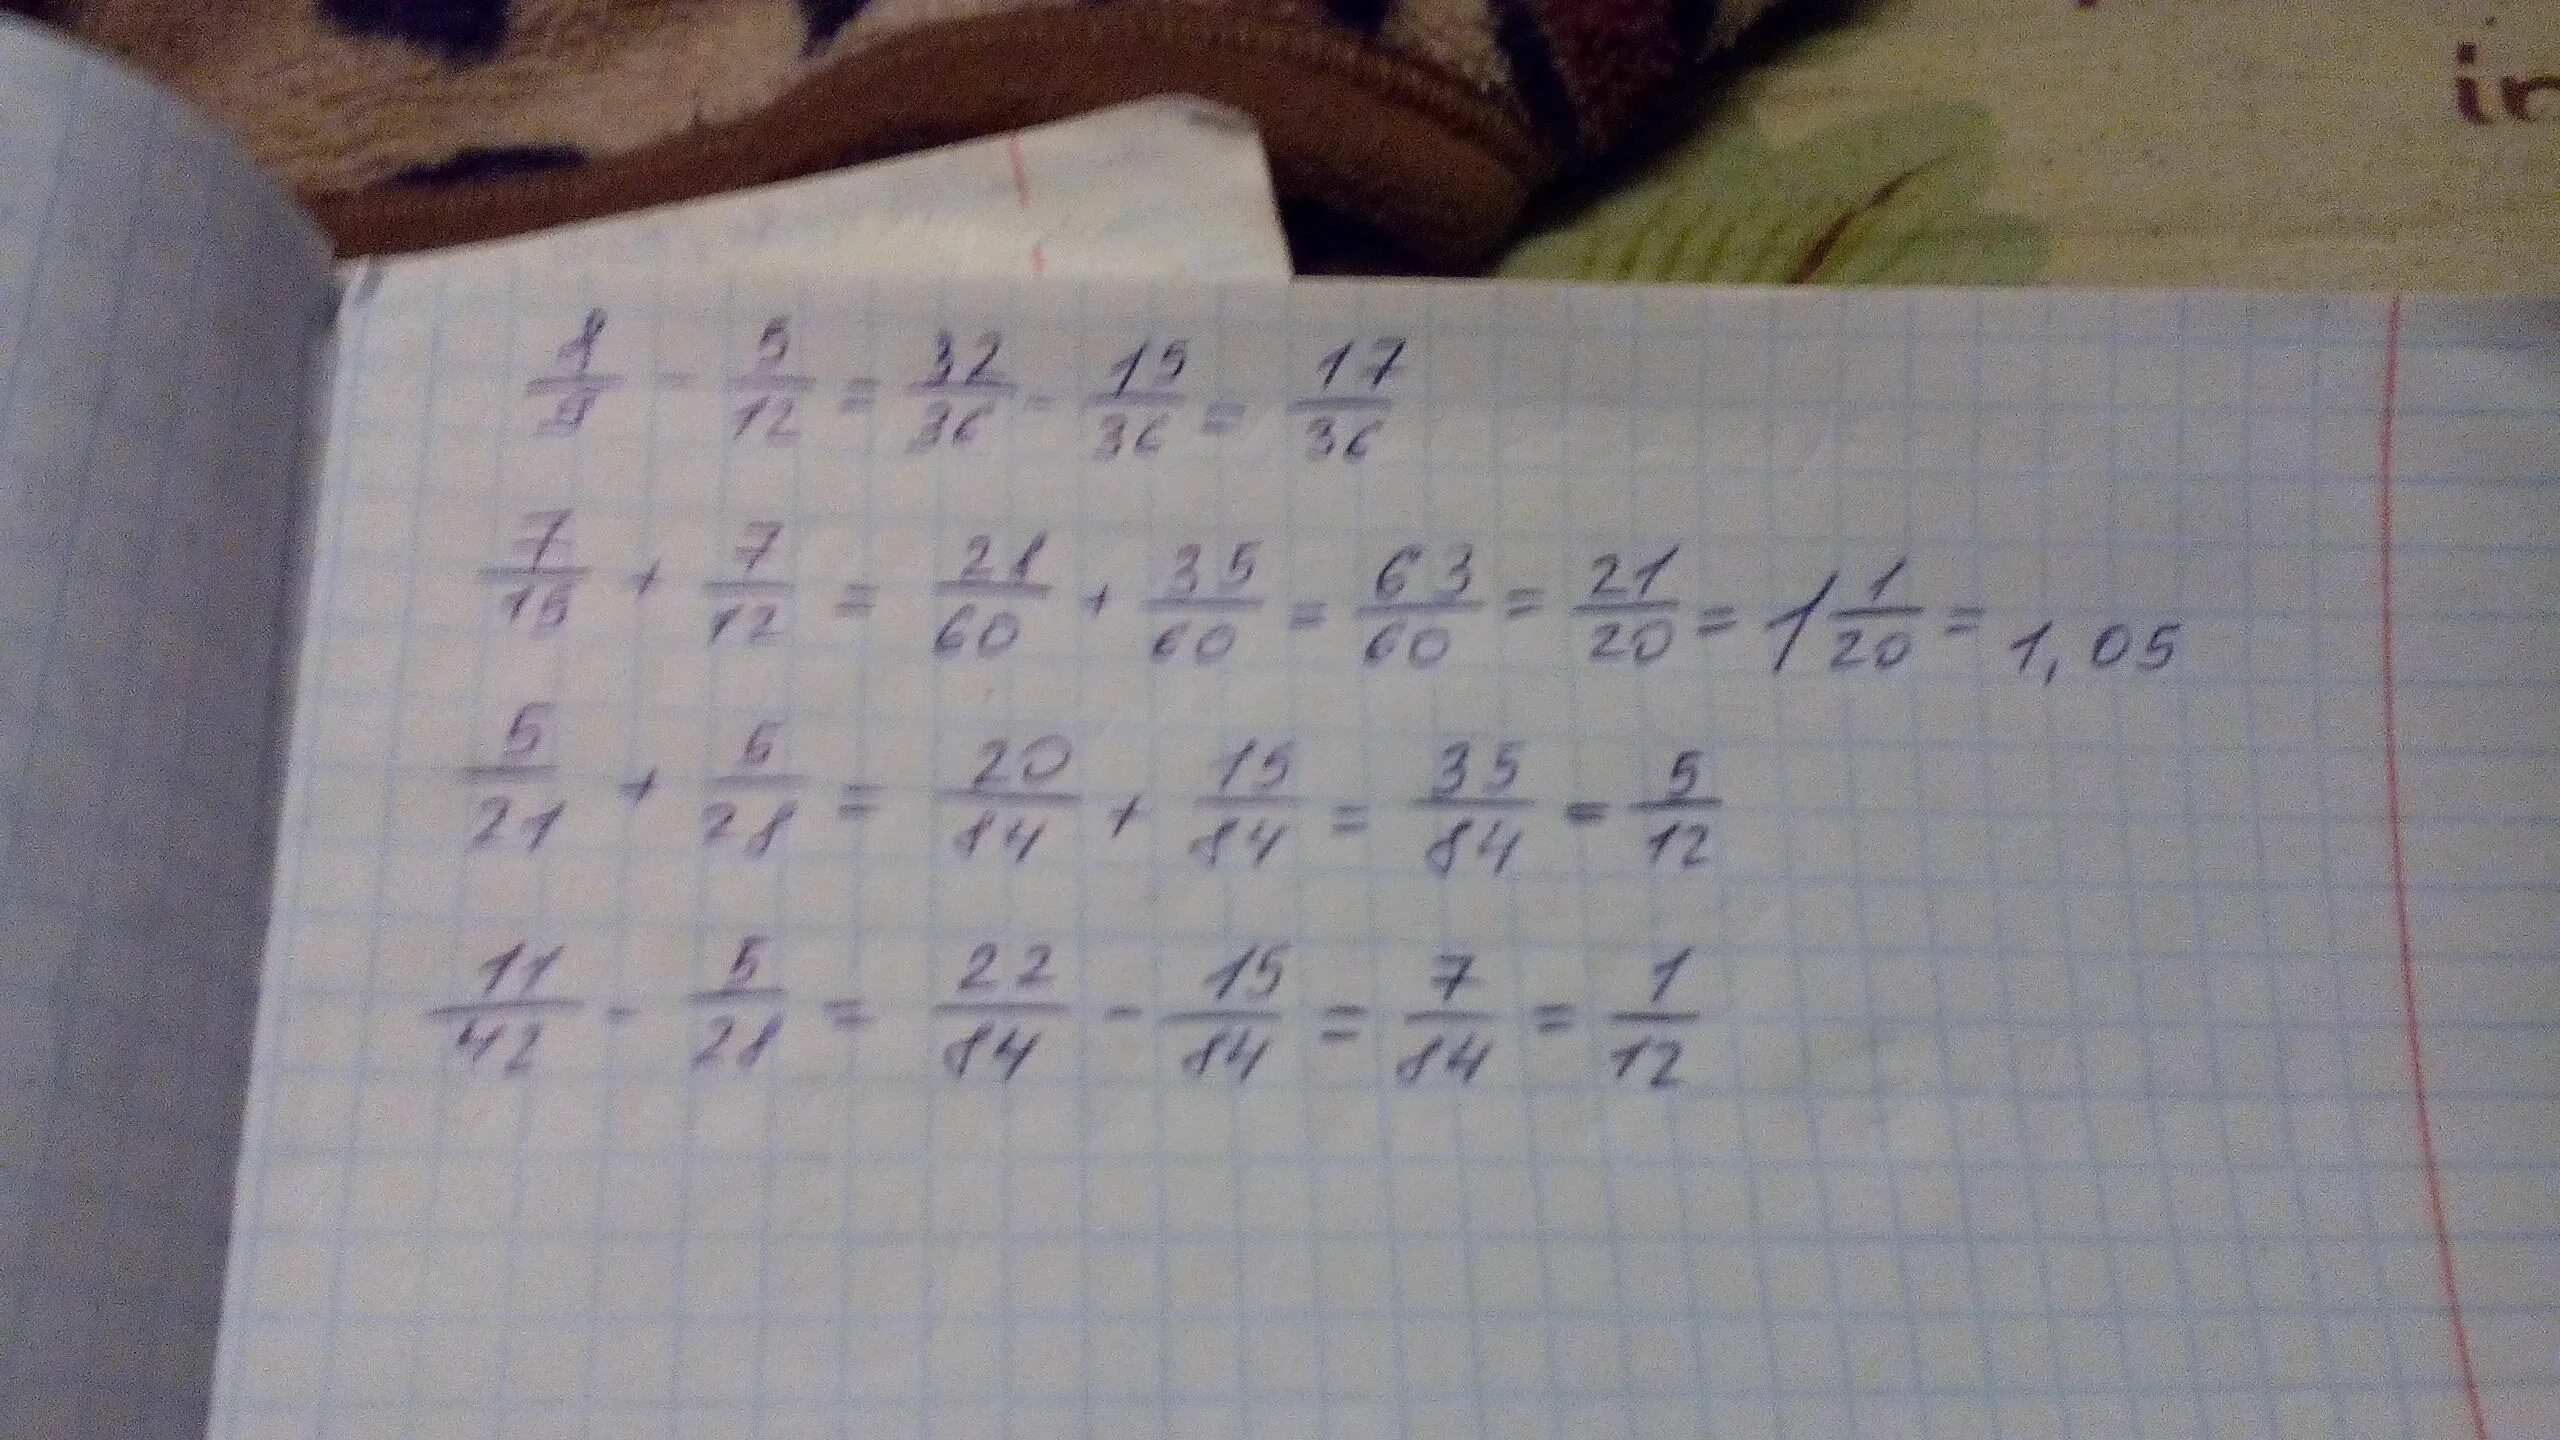 in
8/9 - 5/12 = 32/36 - 15/36 = 17/36
7/15 + 7/12 = 28/60 + 35/60 = 63/60 = 21/20 = 1 1/20 = 1,05
5/21 + 5/28 = 20/84 + 15/84 = 35/84 = 5/12
11/42 - 5/28 = 22/84 - 15/84 = 7/84 = 1/12